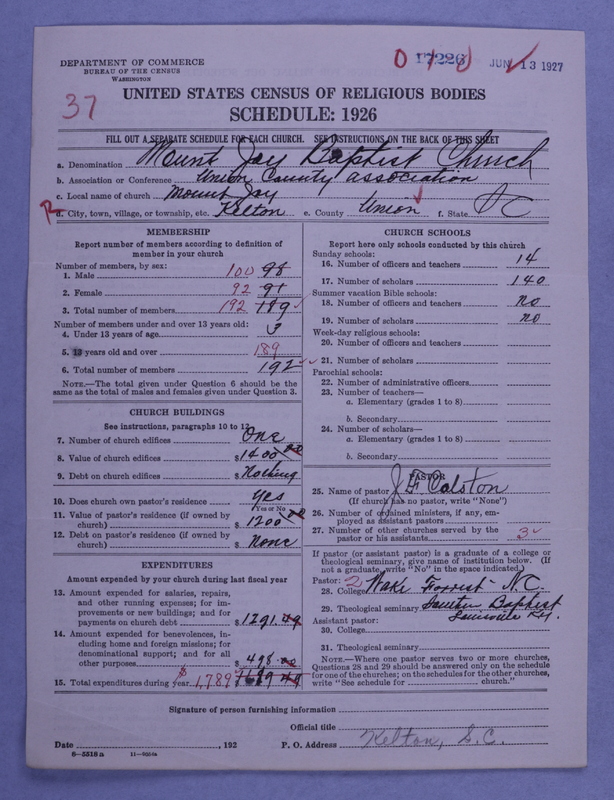 DEPARTMENT OF COMMERCE
BUREAU OF THE CENSUS
WASHINGTON
17226
JUN 13 1927
37
UNITED STATES CENSUS OF RELIGIOUS BODIES
SCHEDULE: 1926
FILL OUT A SEPARATE SCHEDULE FOR EACH CHURCH. SEE INSTRUCTIONS ON THE BACK OF THIS SHEET
a. Denomination Mount Joy Baptist Church
b. Association or Conference Union County association
c. Local name of church Mount Joy
d. City, town, village, or township, etc. Kelton e. County Union f. State S C
MEMBERSHIP
Report number of members according to definition of member in your church
Number of members, by sex:
1. Male 100 98
2. Female 92 91
3. Total number of members 192 189
Number of members under and over 13 years old:
4. Under 13 years of age 3
5. 13 years old and over 189
6. Total number of members 192
NOTE.—The total given under Question 6 should be the same as the total of males and females given under Question 3.
CHURCH BUILDINGS
See instructions, paragraphs 10 to 12
7. Number of church edifices One
8. Value of church edifices $ 1400 00
9. Debt on church edifices $ Nothing
10. Does church own pastor's residence Yes
Yes or No
11. Value of pastor's residence (if owned by church) $ 1200 00
12. Debt on pastor's residence (if owned by church) $ None
EXPENDITURES
Amount expended by your church during last fiscal year
13. Amount expended for salaries, repairs, and other running expenses; for improvements or new buildings; and for payments on church debt $ 1291.49
14. Amount expended for benevolences, including home and foreign missions; for denominational support; and for all other purposes $ 498.00
15. Total expenditures during year $ 1,789
CHURCH SCHOOLS
Report here only schools conducted by this church
Sunday schools:
16. Number of officers and teachers 14
17. Number of scholars 140
Summer vacation Bible schools:
18. Number of officers and teachers no
19. Number of scholars no
Week-day religious schools:
20. Number of officers and teachers
21. Number of scholars
Parochial schools:
22. Number of administrative officers
23. Number of teachers—
a. Elementary (grades 1 to 8)
b. Secondary
24. Number of scholars—
a. Elementary (grades 1 to 8)
b. Secondary
PASTOR
25. Name of pastor Colston
(If church has no pastor, write "None")
26. Number of ordained ministers, if any, employed as assistant pastors
27. Number of other churches served by the pastor or his assistants 3
If pastor (or assistant pastor) is a graduate of a college or theological seminary, give name of institution below. (If not a graduate, write "No" in the space indicated)
Pastor: 2
28. College Wake Forrest - N.C.
29. Theological seminary Southern Baptist
Louisville Ky.
Assistant pastor:
30. College
31. Theological seminary
NOTE.—Where one pastor serves two or more churches, Questions 28 and 29 should be answered only on the schedule for one of the churches; on the schedules for the other churches, write "See schedule for church."
Signature of person furnishing information
Official title
Date , 192 P. O. Address Kelton, S.C.
8-5518a